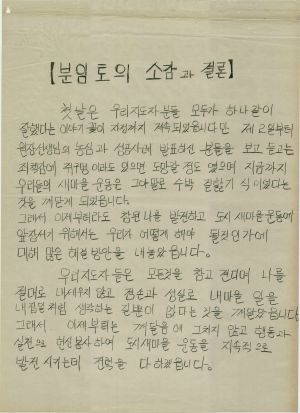 【분임토의 소감과 결론】
첫날은 우리지도자 분들 모두가 하나같이
잘했다는 이야기 꽃이 지정까지 계속되었읍니다만 제2일부터
원장선생님의 농심과 성공사례 발표하신 분들을 보고 듣고는
죄책감에 쥐구멍이라도 있으면 도망갈 정도 였으며 지금까지
우리들의 새마을 운동은 그야말로 수박 겉핥기 식이었다는
것을 깨닫게 되었읍니다.
그래서 이제부터라도 참된 나를 발견하고 도시새마을운동에
앞장서기 위해서는 우리가 어떻게 해야 될것인가에
대해 많은 해결방안을 내놓았읍니다.
우리지도자들은 모든것을 참고 견디며 나를
절대로 내세우지 않고 정손과 성실로 내마을 일을
내집일처럼 생각하는 길뿐이 없다는 것을 깨달았읍니다
그래서 이제부터는 깨달음에 그치지 않고 행동과
실천의 헌신봉사하여 도시새마을 운동을 지속적으로
발전시키는데 전력을 다하겠읍니다.